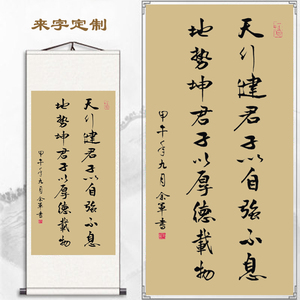 来字定制
天行健君子以自强不息
地势坤君子以厚德載物
甲午年九月余军书
天行健君子以自强不息
地势坤君子以厚德載物
甲午年九月余军书